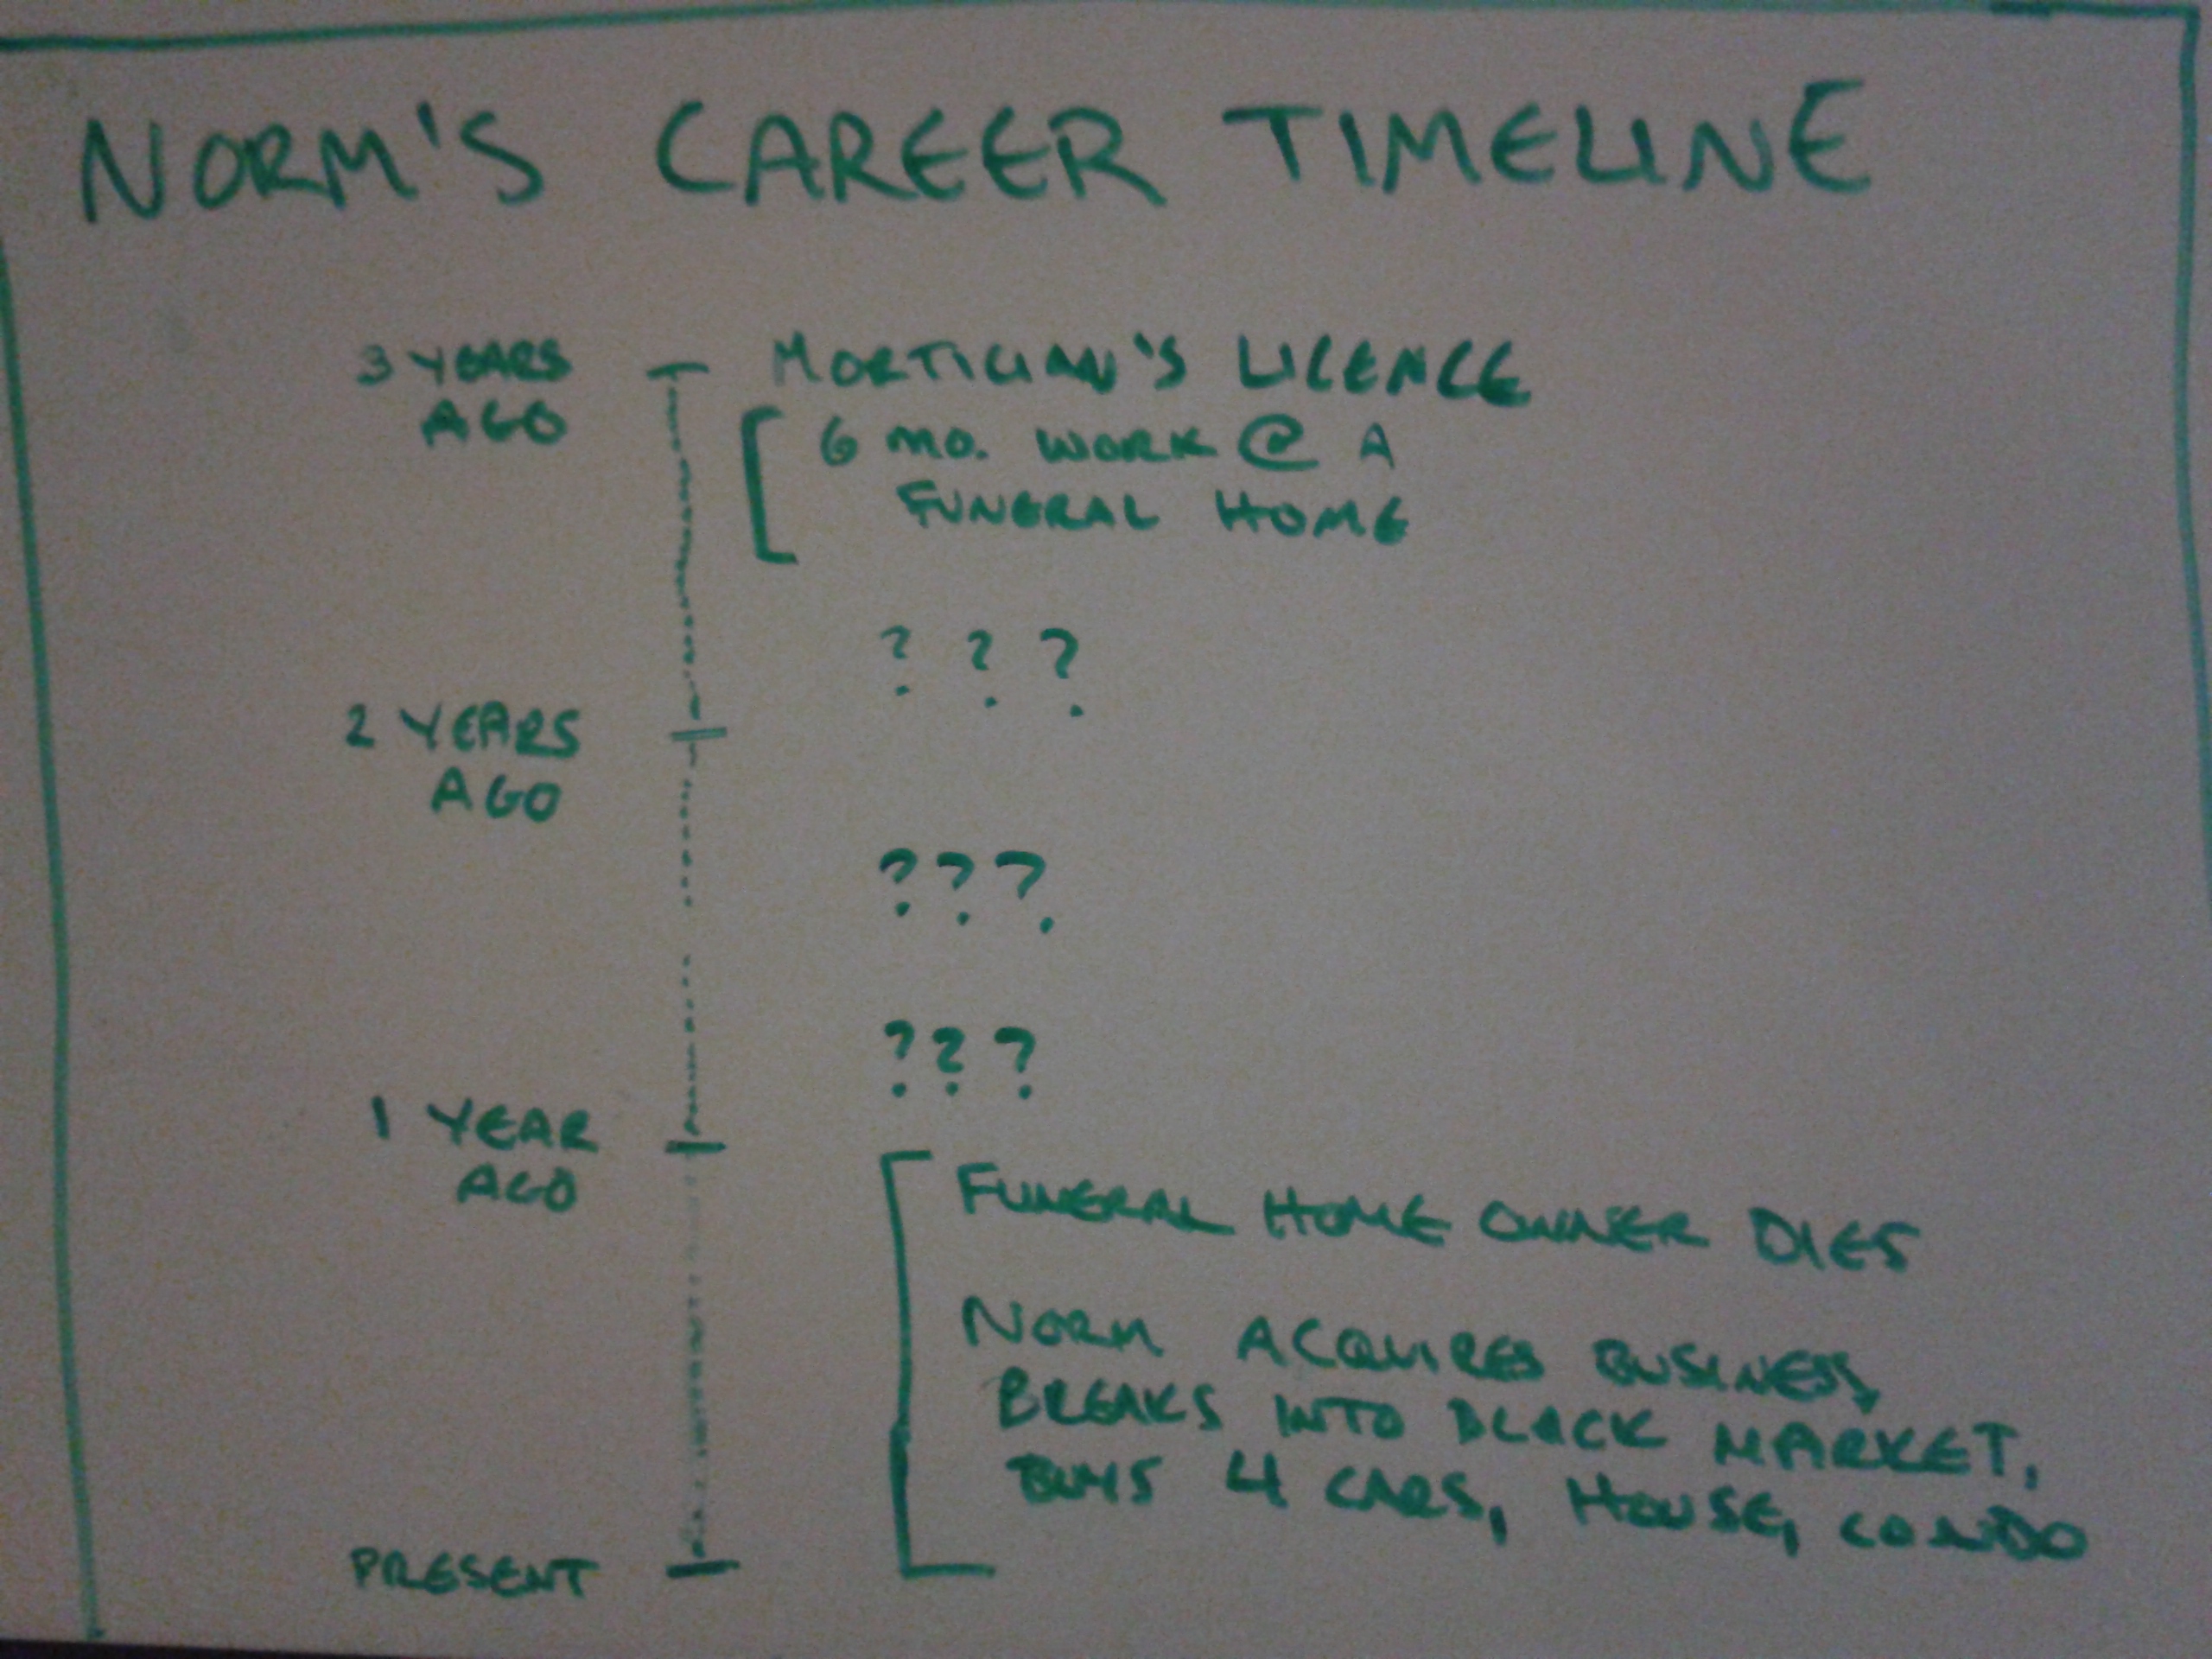 NORM'S CAREER TIMELINE
3 YEARS
AGO
MORTICIAN'S LICENCE
6 MO. WORK @ A
FUNERAL HOME
? ? ?
2 YEARS
AGO
???
???
1 YEAR
AGO
FUNERAL HOME OWNER DIES
NORM ACQUIRES BUSINESS,
BREAKS INTO BLACK MARKET,
BUYS 4 CARS, HOUSE, CONDO
PRESENT